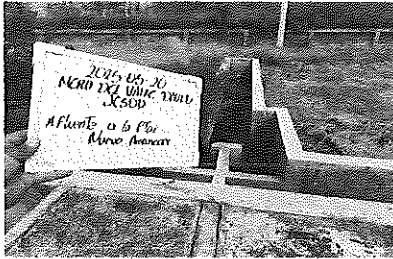 2025-05-20
MCRD DEL VALLE
JCSOD
Afluente a la PTar
Nuevo Amanecer